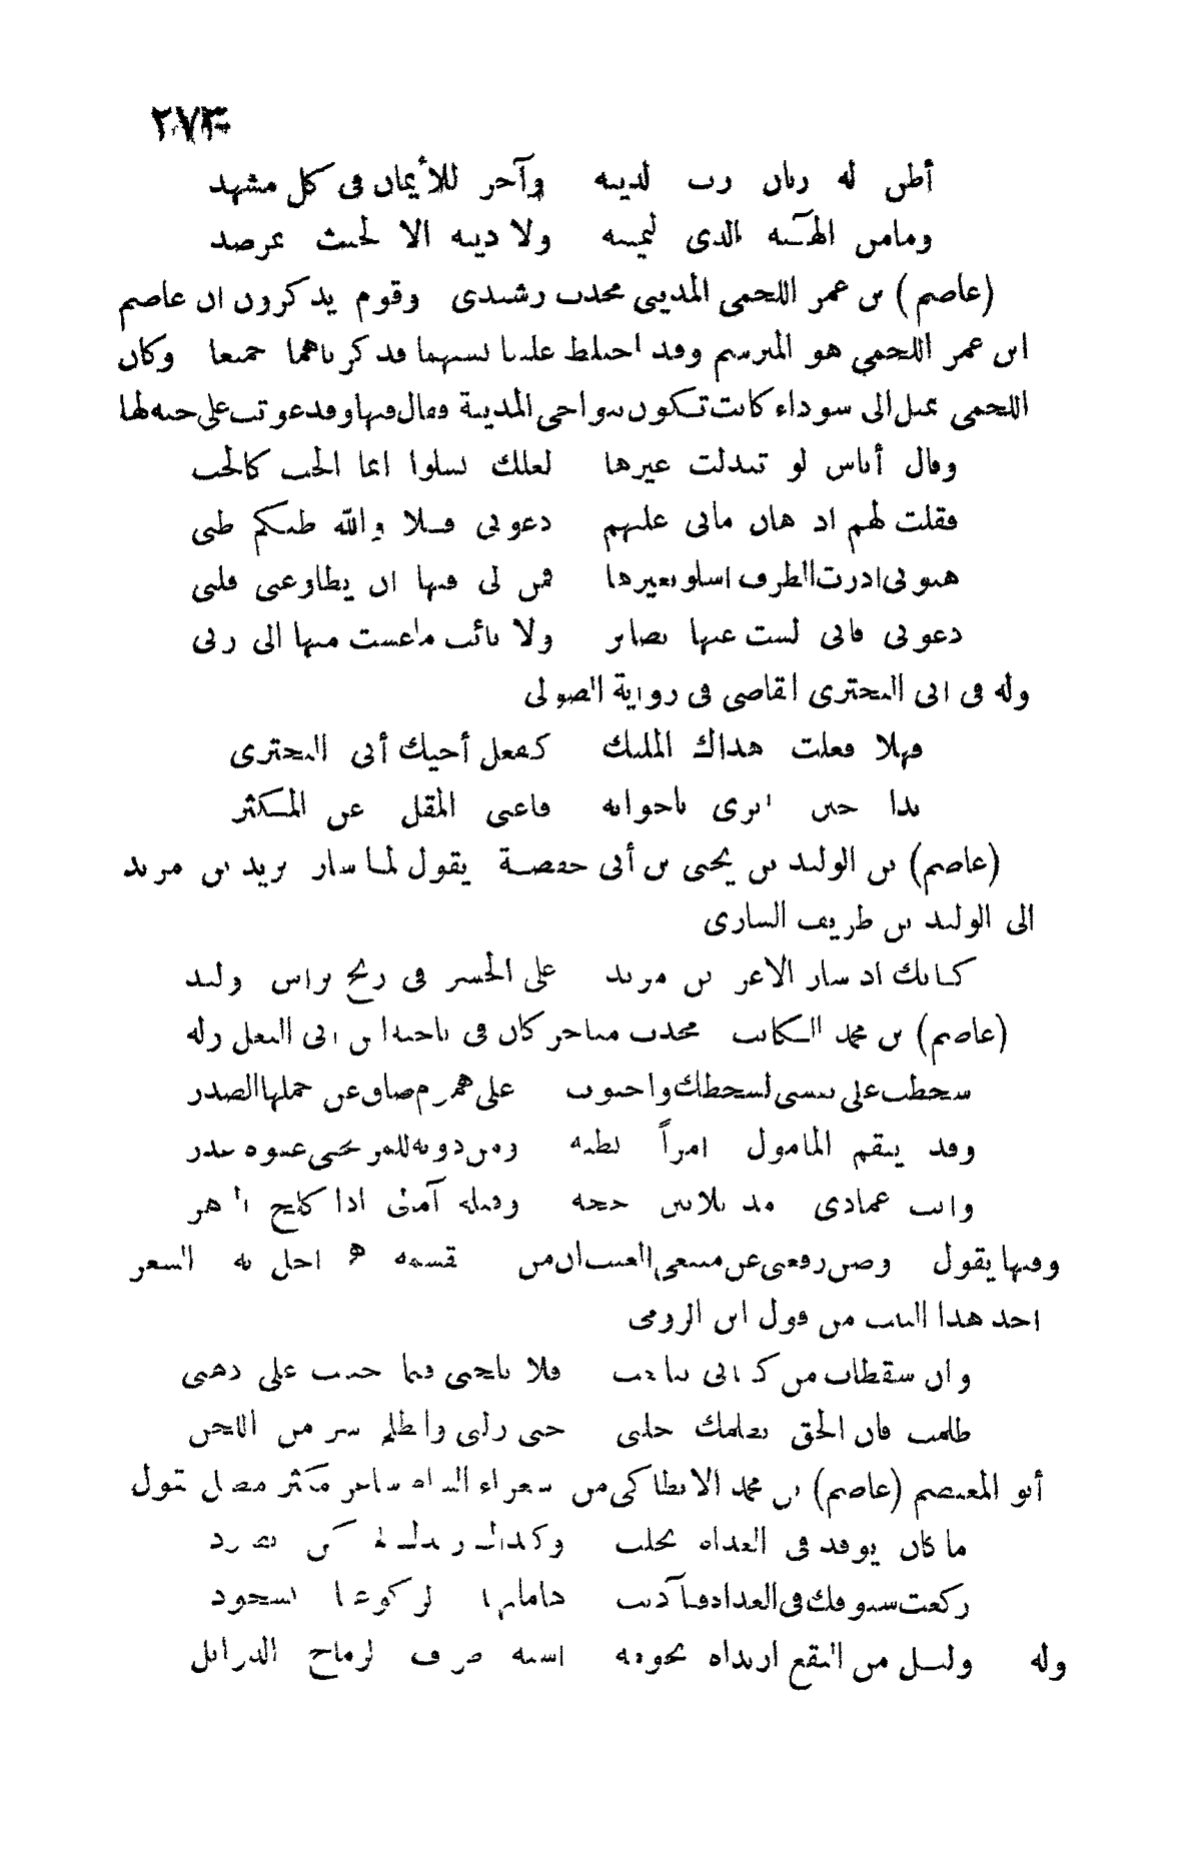 ٢٧٣
أظن له ربان رب لدينه وآخر للأيمان في كل مشهد
وما من الهيه الذي ليمينه ولا دينه الا لحنث بمرصد
(عاصم) بن عمر اللخمي المديني محدث رشيدي وقوم يذكرون ان عاصم
ابن عمر اللخمي هو المبرسم وقد اختلط علينا نسبهما فذكرناهما جميعا وكان
اللخمي يميل الى سوداء كانت تكون بنواحي المدينة فقال فيها وقد عوتب على حبه لها
وقال أناس لو تبدلت غيرها لعلك تسلوا انما الحب كالحب
فقلت لهم اذ هان مابى عليهم دعوني فلا والله طبكم طبي
هبوني ادرت الطرف اسلو بغيرها فمن لي فيها ان يطاوعني قلبي
دعوني فاني لست عنها بصابر ولا تائب ماعشت منها الى ربي
وله في ابي البحترى القاضي في رواية الصولي
فهلا فعلت هداك المليك كفعل أخيك أبي البحترى
بدا حين اثرى باخوانه فاغنى المقل عن المكثر
(عاصم) بن الوليد بن يحيى بن أبي حفصة يقول لما سار يزيد بن مزيد
الى الوليد بن طريف الشارى
كانك اذ سار الاغر بن مزيد على الجسر في رمح براس وليد
(عاصم) بن محمد الكاتب محدث متاخر كان في ناحية ابن ابي البغل وله
سخطت على نفسي لسخطك واحتوت على همم ضاق عن حملها الصدر
وقد ينقم المامول امراً يظنه ومن دونه للمرتجى عفوه عذر
وانت عمادى مذ ثلاثين حجة وقبله آمنى اذا كلح الدهر
وفيها يقول وصن رفعتي عن مسمعي العتب ان من قسمه اخل به الشعر
اخذ هذا البيت من قول ابن الرومي
وان سقطات من كتابى تتابعت فلا تلحنى فيما جنيت على ذهني
ظلمت فان الحق بظلمك خلتى حتى رابنى واظلم سر من اللحن
أبو المعتصم (عاصم) بن محمد الانطاكي من شعراء الشام شاعر مكثر يقول
ما كان يوقد في العداه بحلب
ركعت سيوفك في العدا لركوعها السجود
وله وليل من النقع ارتداه بخوضه اسنة لرماح الذوابل